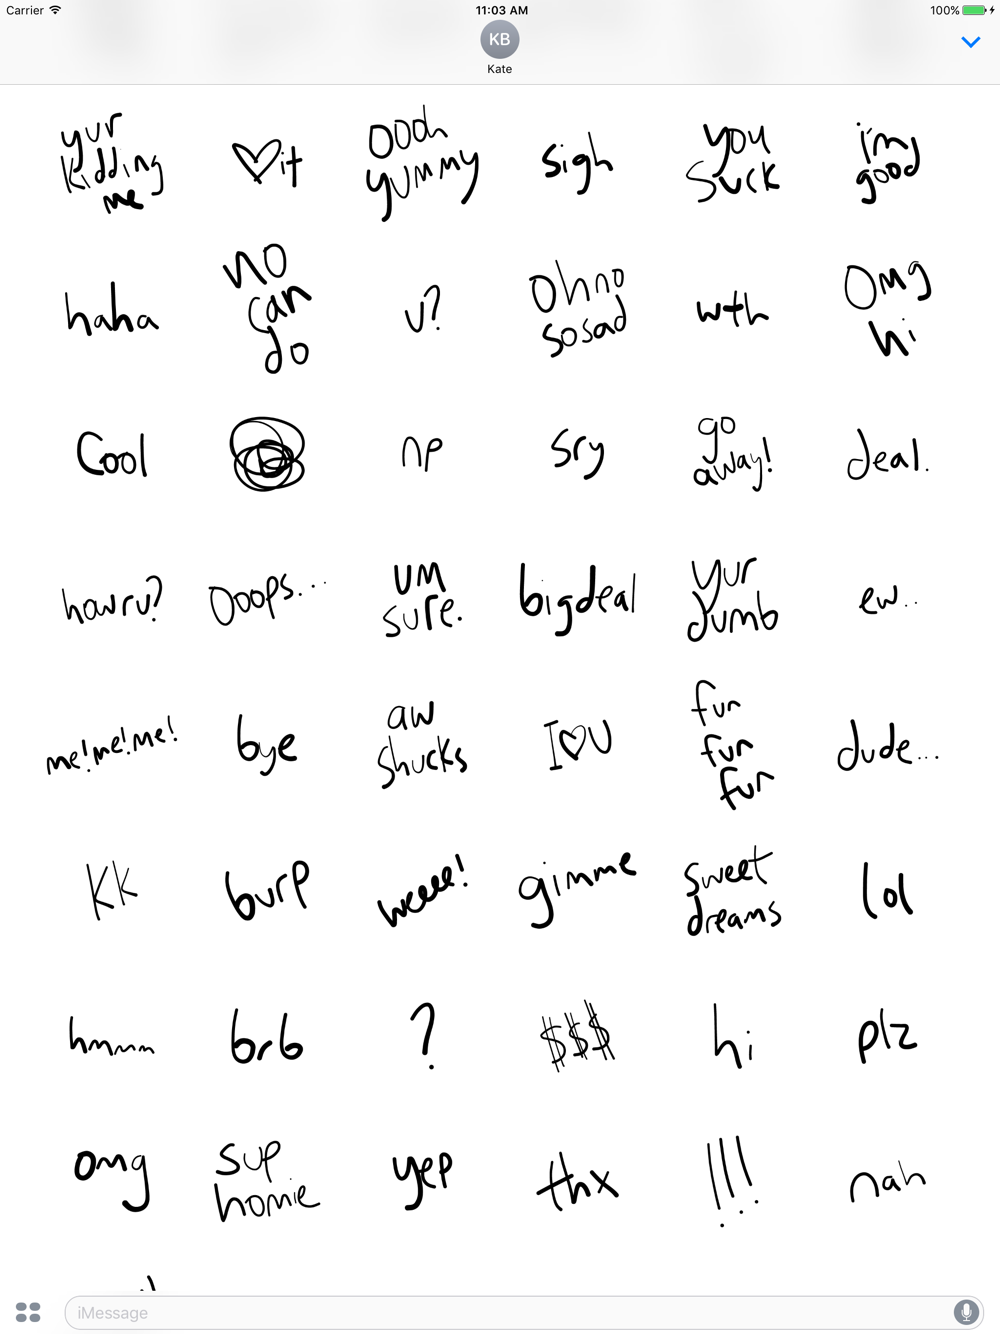 Carrier 11:03 AM 100%
KB
Kate
yur kidding me
♡it
Oooh yummy
sigh
you suck
i'm good
haha
no can do
u?
Ohno sosad
wth
Omg hi
Cool
np
sry
go away!
deal.
howru?
Ooops...
um sure.
bigdeal
yur dumb
ew..
me!me!me!
bye
aw shucks
I♡U
fun fun fun
dude...
KK
burp
weeee!
gimme
sweet dreams
lol
hmmm
brb
?
$$$
hi
plz
omg
sup homie
yep
thx
!!!
nah
iMessage